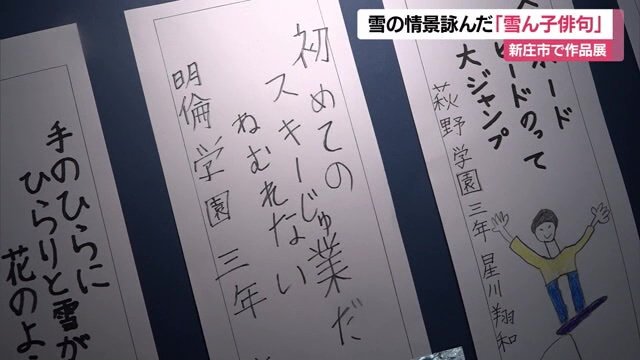 雪の情景詠んだ「雪ん子俳句」
新庄市で作品展
ボード
ピードのって
大ジャンプ
萩野学園 三年 星川翔和
初めての
スキーじゅ業だ
ねむれない
明倫学園 三年
手のひらに
ひらりと雪が
花のよ